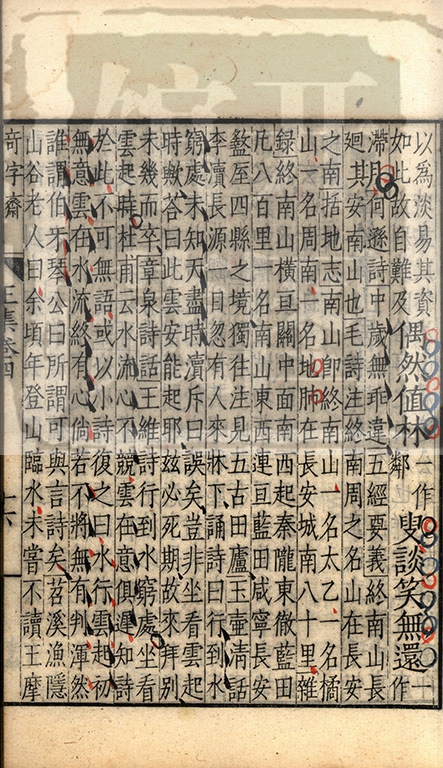 以為淡易其資
如此故自難及偶然值林一作鄰叟談笑無還一作
滯用何遜詩中歲無乖違五經要義終南山長
廻其安南山也毛詩注終南周之名山在長安
之南括地志南山卽終南山一名太乙一名橘
山一名周南一名地肺在長安城南八十里雜
録終南山橫亘關中面南西起秦隴東徹藍田
凡八百里一名南山東西連亘藍田咸寧長安
盩厔四縣之境獨往注見五古田廬玉壺清話
李瀆長源一日忽有人來牀下誦詩曰行到水
窮處未知天盡時瀆斥曰誤矣豈非坐看雲起
時歟荅曰此雲安能起耶玆必死期故來拜別
未幾而卒章泉詩話王維詩行到水窮處坐看
雲起時杜甫云水流心不競雲在意俱遲知詩
於此不可無語或以小詩復之曰水行雲起初
無意雲在水流終有心倘若不將無有判渾然
誰謂伯牙琴公曰所謂可與言詩矣苕溪漁隱
山谷老人曰余頃年登山臨水未嘗不讀王摩
奇字齋 王集卷四